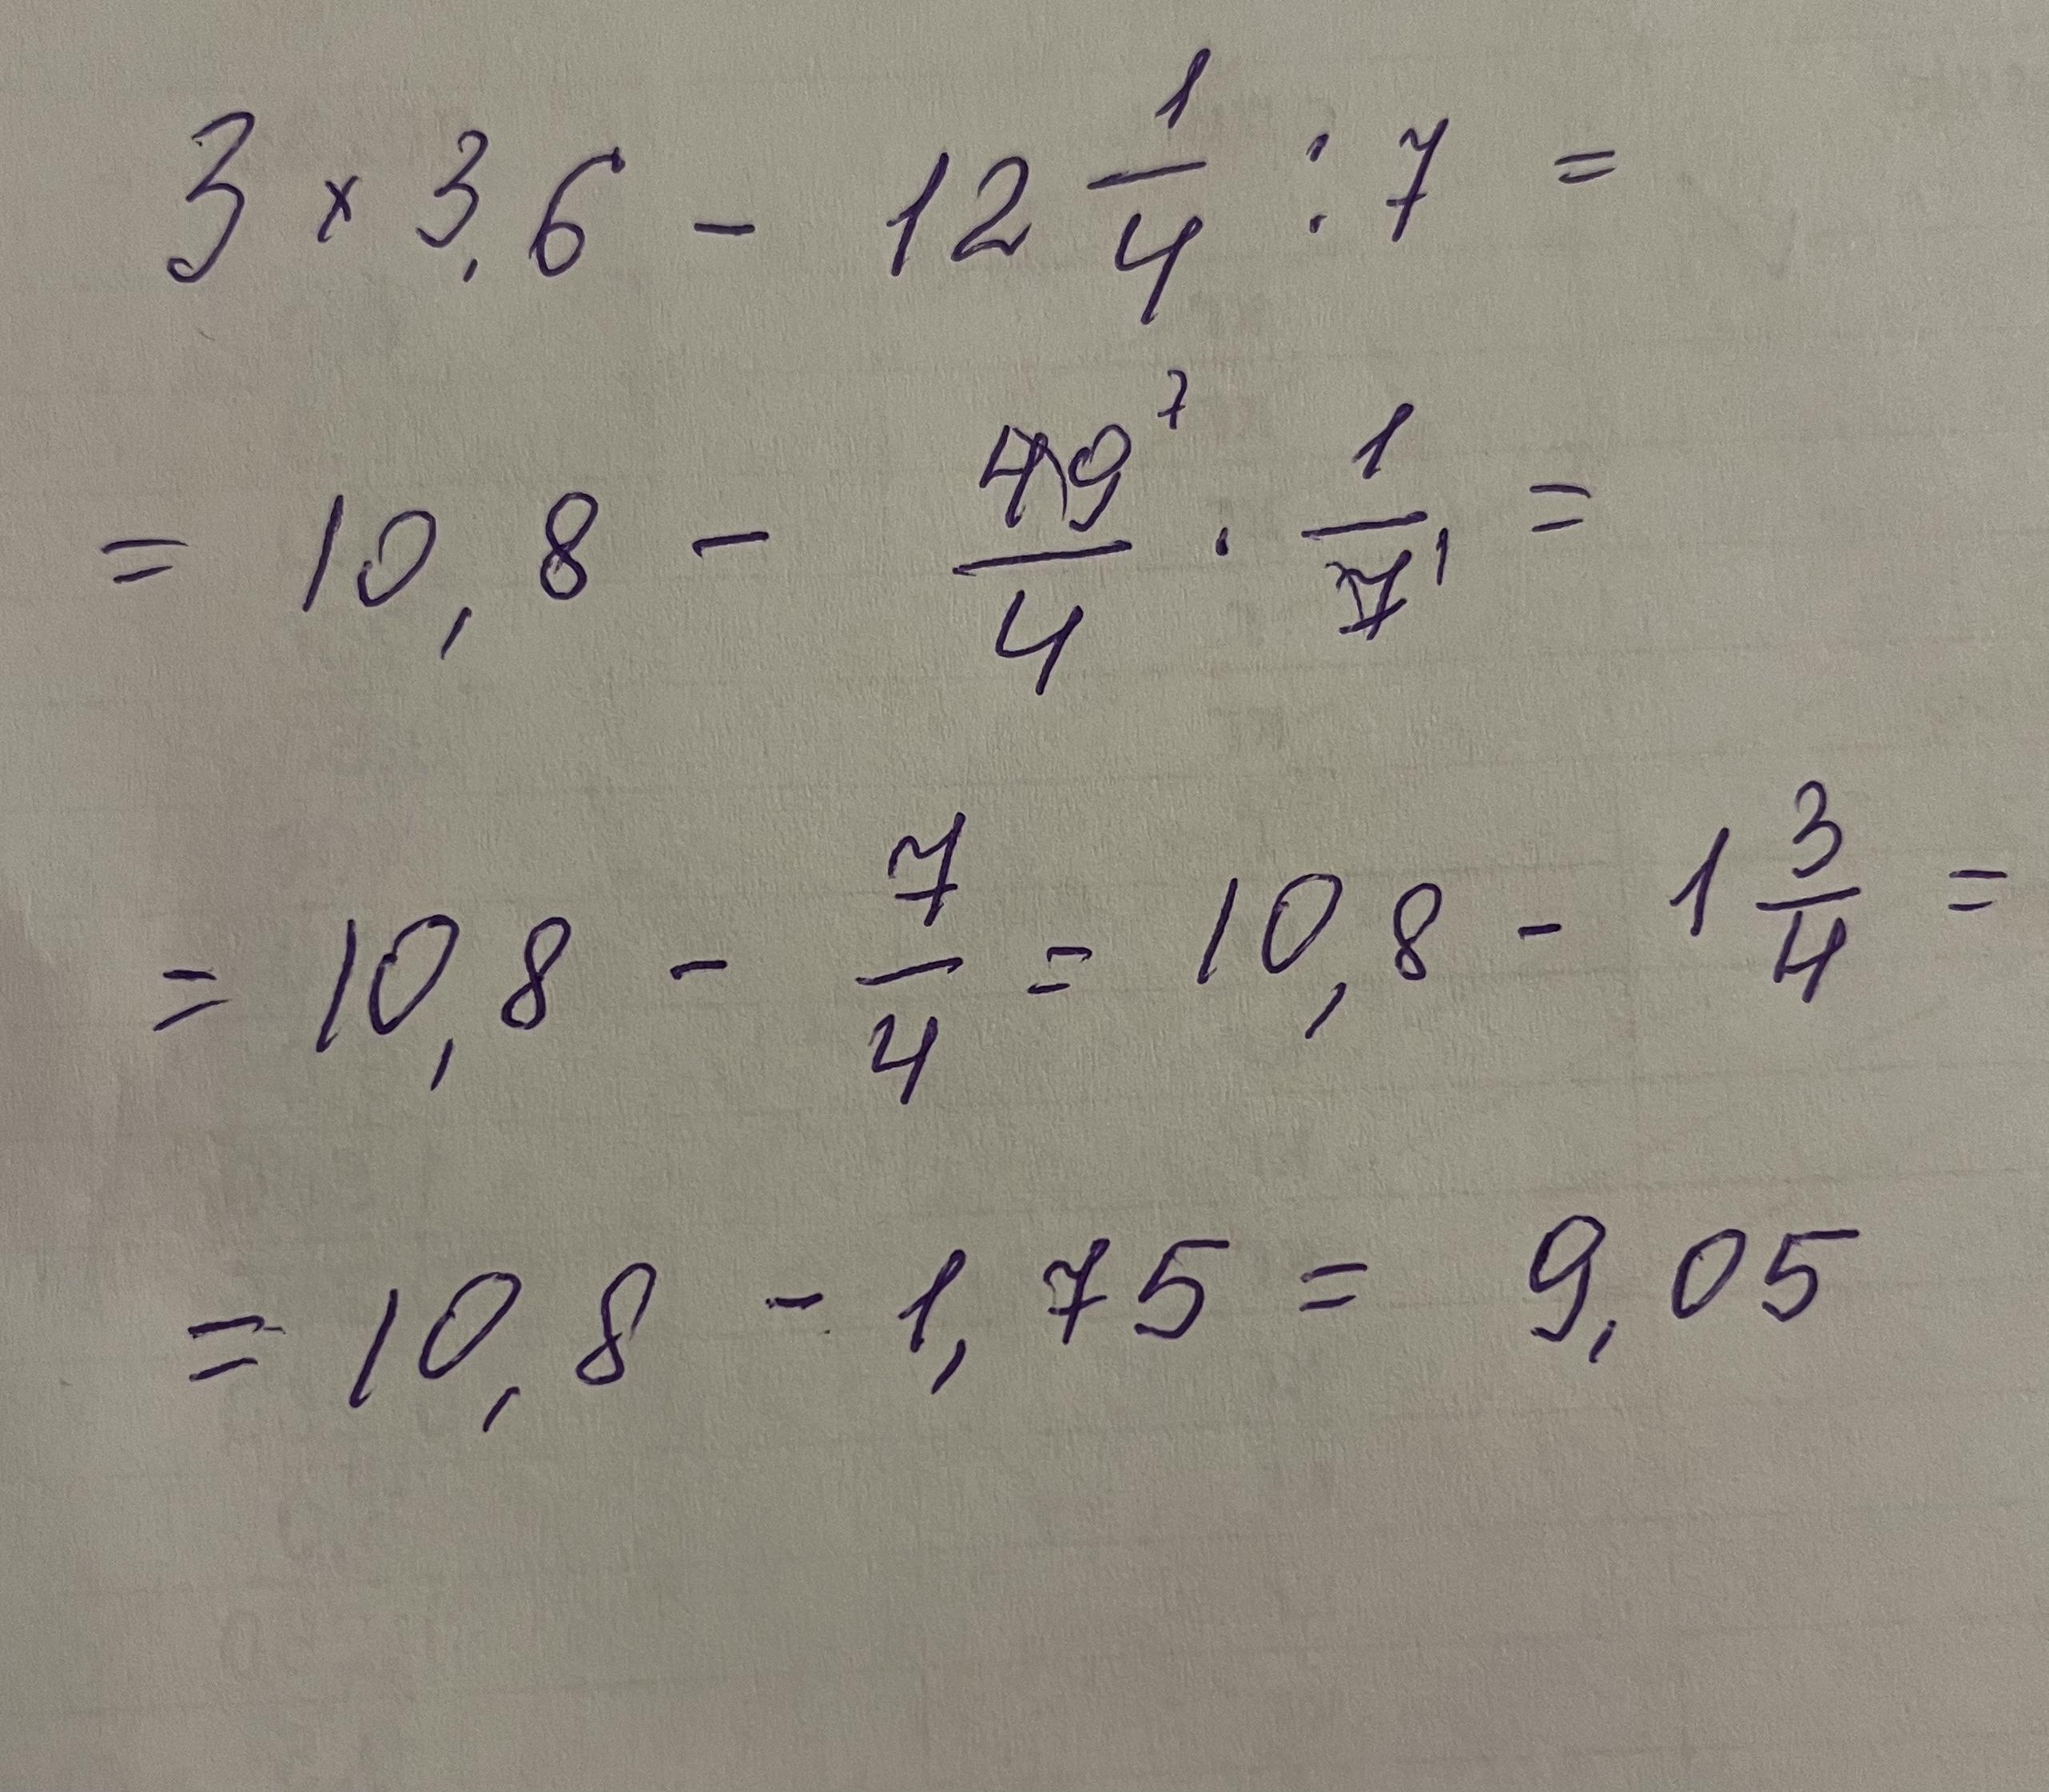 3 × 3,6 - 12 1/4 : 7 =
= 10,8 - 49⁷/4 · 1/7₁ =
= 10,8 - 7/4 = 10,8 - 1 3/4 =
= 10,8 - 1,75 = 9,05